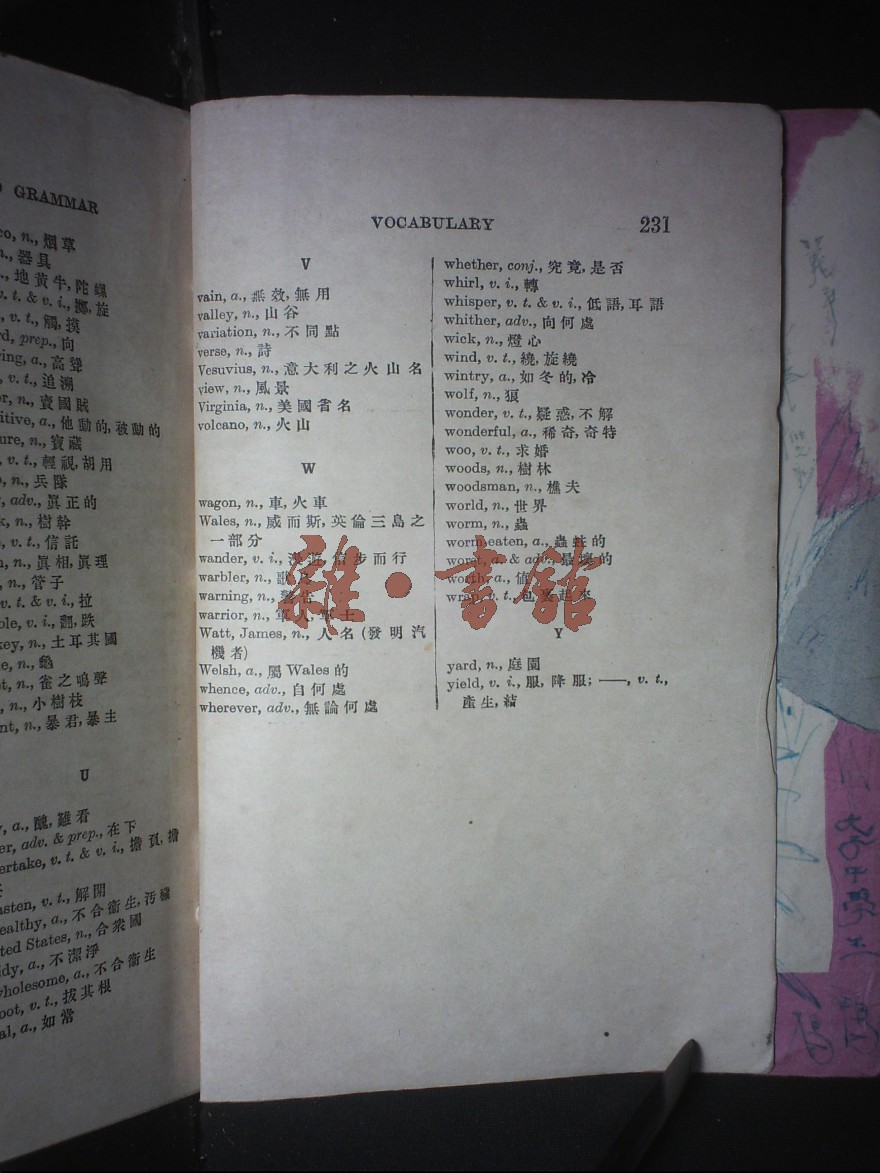 GRAMMAR
co, n., 烟草
n., 器具
n., 地黃牛, 陀螺
v. t. & v. i., 擲, 旋
v. t., 觸, 摸
rd, prep., 向
ring, a., 高聳
v. t., 追溯
or, n., 賣國賊
sitive, a., 他動的, 被動的
sure, n., 寶藏
v. t., 輕視, 胡用
n., 兵隊
adv., 眞正的
k, n., 樹幹
v. t., 信託
n, n., 眞相, 眞理
n., 管子
v. t. & v. i., 拉
ble, v. i., 翻, 跌
key, n., 土耳其國
le, n., 龜
et, n., 雀之鳴聲
n., 小樹枝
nt, n., 暴君, 暴主
U
y, a., 醜, 難看
er, adv. & prep., 在下
ertake, v. t. & v. i., 擔負, 擔
asten, v. t., 解開
ealthy, a., 不合衞生, 汚穢
ted States, n., 合衆國
idy, a., 不潔淨
vholesome, a., 不合衞生
oot, v. t., 拔其根
al, a., 如常
VOCABULARY 231
V
vain, a., 無效, 無用
valley, n., 山谷
variation, n., 不同點
verse, n., 詩
Vesuvius, n., 意大利之火山名
view, n., 風景
Virginia, n., 美國省名
volcano, n., 火山
W
wagon, n., 車, 火車
Wales, n., 威而斯, 英倫三島之
一部分
wander, v. i., 漫遊, 信步而行
warbler, n., 歌
warning, n., 警告
warrior, n., 軍人, 士
Watt, James, n., 人名 (發明汽
機者)
Welsh, a., 屬 Wales 的
whence, adv., 自何處
wherever, adv., 無論何處
whether, conj., 究竟, 是否
whirl, v. i., 轉
whisper, v. t. & v. i., 低語, 耳語
whither, adv., 向何處
wick, n., 燈心
wind, v. t., 繞, 旋繞
wintry, a., 如冬的, 冷
wolf, n., 狼
wonder, v. t., 疑惑, 不解
wonderful, a., 稀奇, 奇特
woo, v. t., 求婚
woods, n., 樹林
woodsman, n., 樵夫
world, n., 世界
worm, n., 蟲
worm-eaten, a., 蟲蛀的
worst, a. & adv., 最壞的
worth, a., 値
wrap, v. t., 包裹起來
Y
yard, n., 庭園
yield, v. i., 服, 降服; ——, v. t.,
產生, 結
雜·書館